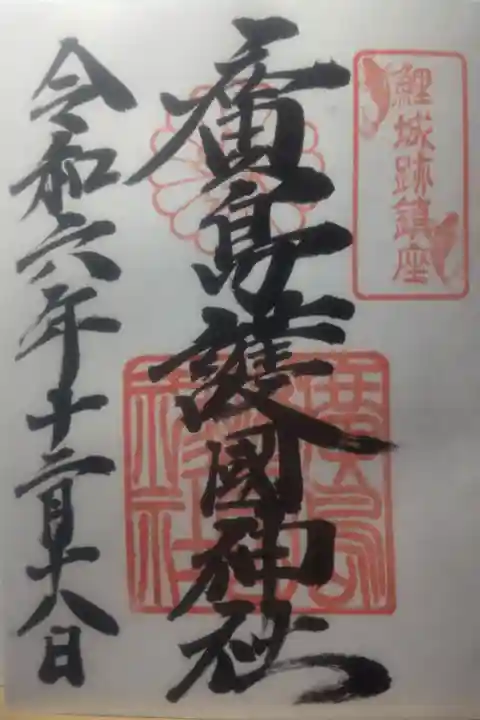 鯉城跡鎮座
廣島護國神社
令和六年十二月十八日